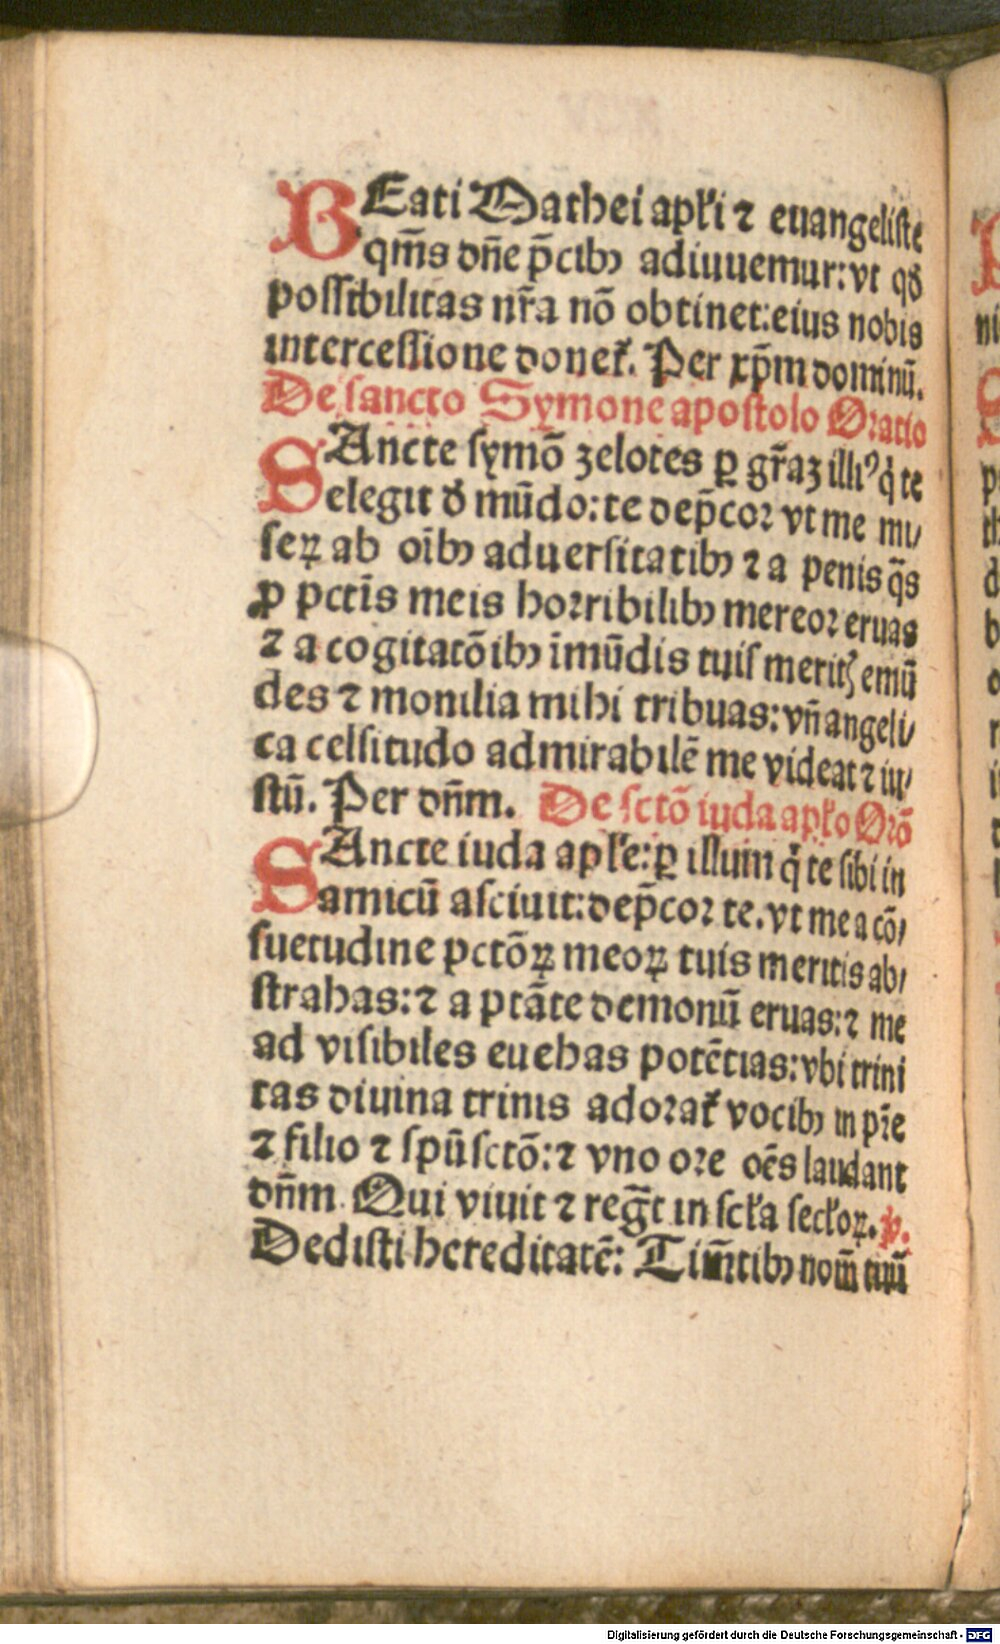 BEati Mathei apłi ⁊ euangeliste
qm̄s dn̄e p̄cibꝫ adiuuemur: vt qð
possibilitas nr̄a nō obtinet: eius nobis
intercessione donet᷑. Per xp̄m dominū.
De sancto Symone apostolo Oratio
SAncte symō zelotes ꝑ gr̄aʒ illiꝰ q̇ te
elegit ð mūdo: te dep̄cor vt me mi/
seꝝ ab oībꝫ aduersitatibꝫ ⁊ a penis q̄s
ꝓ pctīs meis horribilibꝫ mereor eruas
⁊ a cogitatōibꝫ īmūdis tuis meritꝭ emū
des ⁊ monilia mihi tribuas: vn̄ angeli/
ca celsitudo admirabilē me videat ⁊ iu/
stū. Per dn̄m. De sctō iuda apło Orō
SAncte iuda apłe: ꝑ illum q̇ te sibi in
amicū asciuit: dep̄cor te. vt me a cō/
suetudine pctōꝝ meoꝝ tuis meritis ab/
strahas: ⁊ a ptāte demonū eruas: ⁊ me
ad visibiles euehas potētias: vbi trini
tas diuina trinis adorat᷑ vocibꝫ in pr̄e
⁊ filio ⁊ spū sctō: ⁊ vno ore oēs laudant
dn̄m Qui viuit ⁊ reḡt in scła secłoꝝ. ꝟ.
Dedisti hereditatē: Tim̄tibꝫ nom̄ tuū
Digitalisierung gefördert durch die Deutsche Forschungsgemeinschaft - DFG